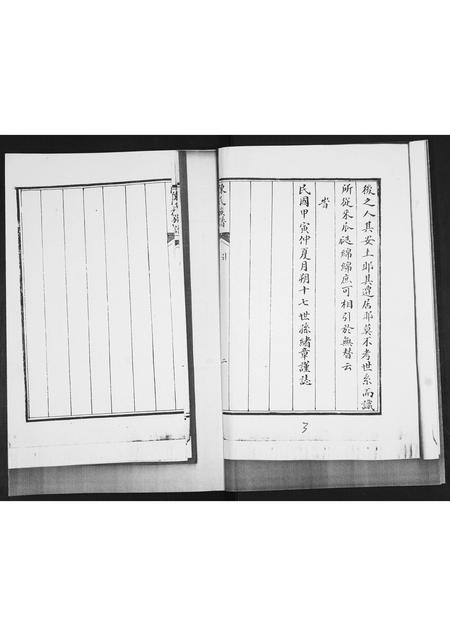 後之人其安土耶其遷居耶莫不考世系而識
所從來瓜瓞綿綿庶可相引於無替云
旹
民國甲寅仲夏月朔十七世孫緒章謹誌
陳氏族譜
引
二
3